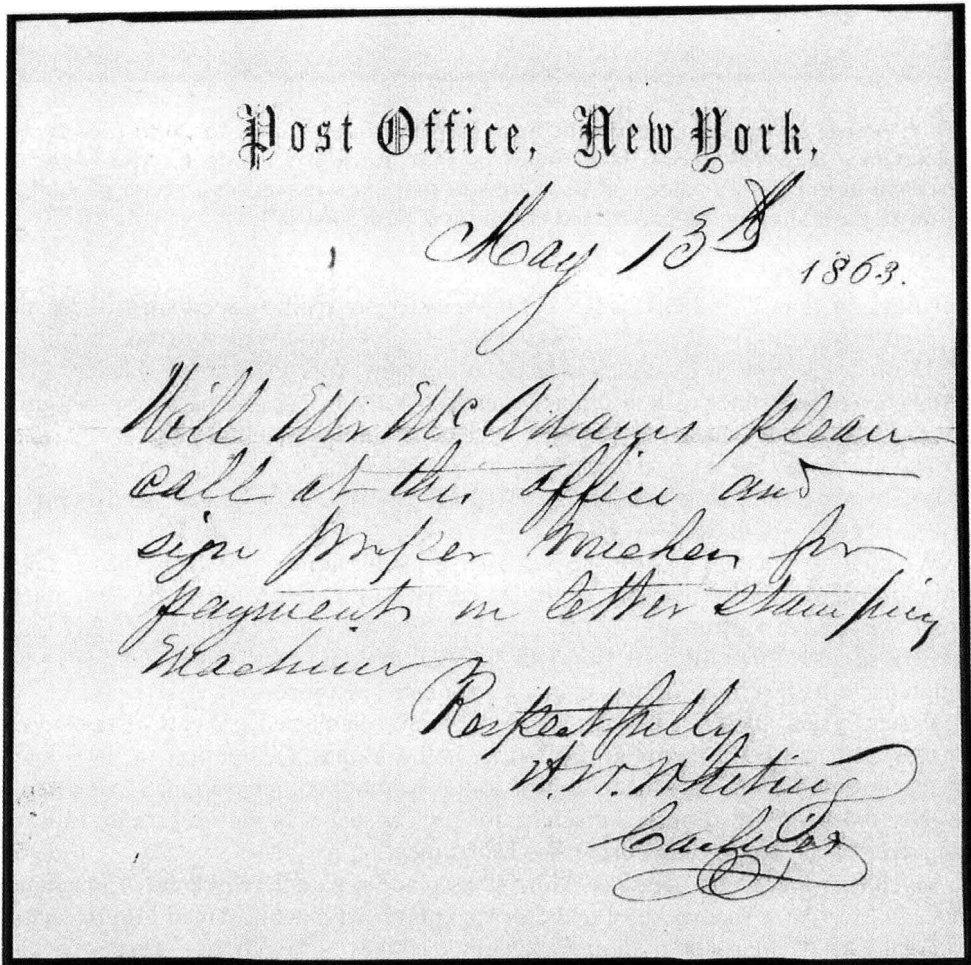 Post Office, New York,
May 13th 1863.
Will Mr McAdams please
call at this office and
sign proper voucher for
payment on letter stamping
Machine
Respectfully
W. Whiting
Cashier